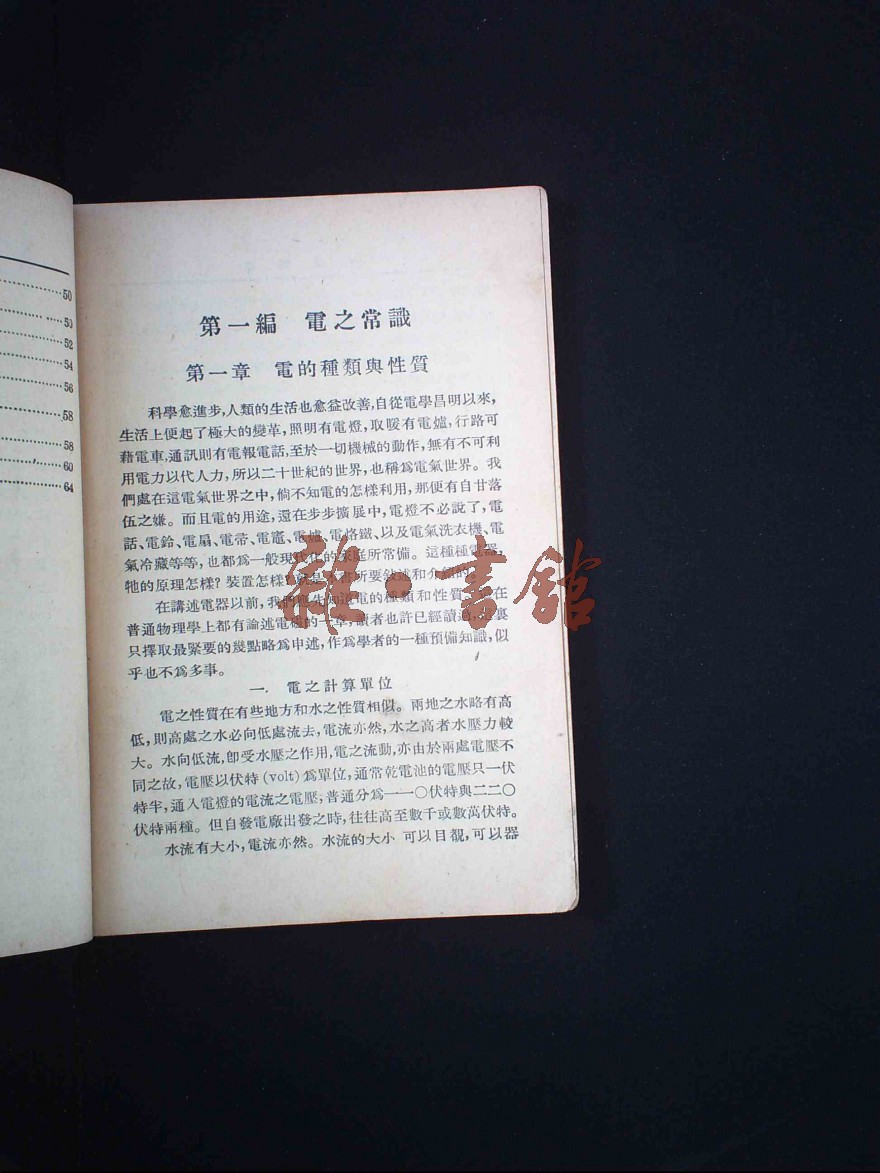 50
50
52
54
56
58
58
60
64
第一編 電之常識
第一章 電的種類與性質
科學愈進步,人類的生活也愈益改善,自從電學昌明以來,
生活上便起了極大的變革,照明有電燈,取暖有電爐,行路可
藉電車,通訊則有電報電話,至於一切機械的動作,無有不可利
用電力以代人力,所以二十世紀的世界,也稱爲電氣世界。我
們處在這電氣世界之中,倘不知電的怎樣利用,那便有自甘落
伍之嫌。而且電的用途,還在步步擴展中,電燈不必說了,電
話、電鈴、電扇、電帚、電竈、電爐、電烙鐵、以及電氣洗衣機、電
氣冷藏等等,也都爲一般現代化的家庭所常備。這種種電器,
牠的原理怎樣?裝置怎樣?就是本書所要敍述和介紹的
在講述電器以前,我們應先知道電的種類和性質 在
普通物理學上都有論述電磁的一章,讀者也許已經讀過,這裏
只擇取最緊要的幾點略爲申述,作爲學者的一種預備知識,似
乎也不爲多事。
一. 電之計算單位
電之性質在有些地方和水之性質相似。兩地之水略有高
低,則高處之水必向低處流去,電流亦然,水之高者水壓力較
大。水向低流,卽受水壓之作用,電之流動,亦由於兩處電壓不
同之故,電壓以伏特(volt)爲單位,通常乾電池的電壓只一伏
特半,通入電燈的電流之電壓,普通分爲一一〇伏特與二二〇
伏特兩種。但自發電廠出發之時,往往高至數千或數萬伏特。
水流有大小,電流亦然。水流的大小 可以目覩,可以器
雜·書館